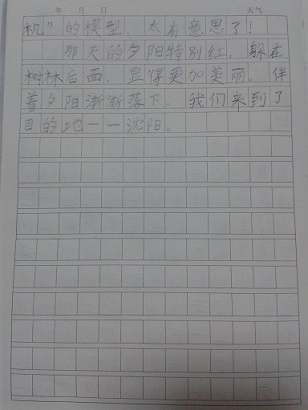 年 月 日 天气
机”的模型，太有意思了！
那天的夕阳特别红，躲在
树林后面，显得更加美丽，伴
着夕阳渐渐落下，我们来到了
目的地——沈阳。